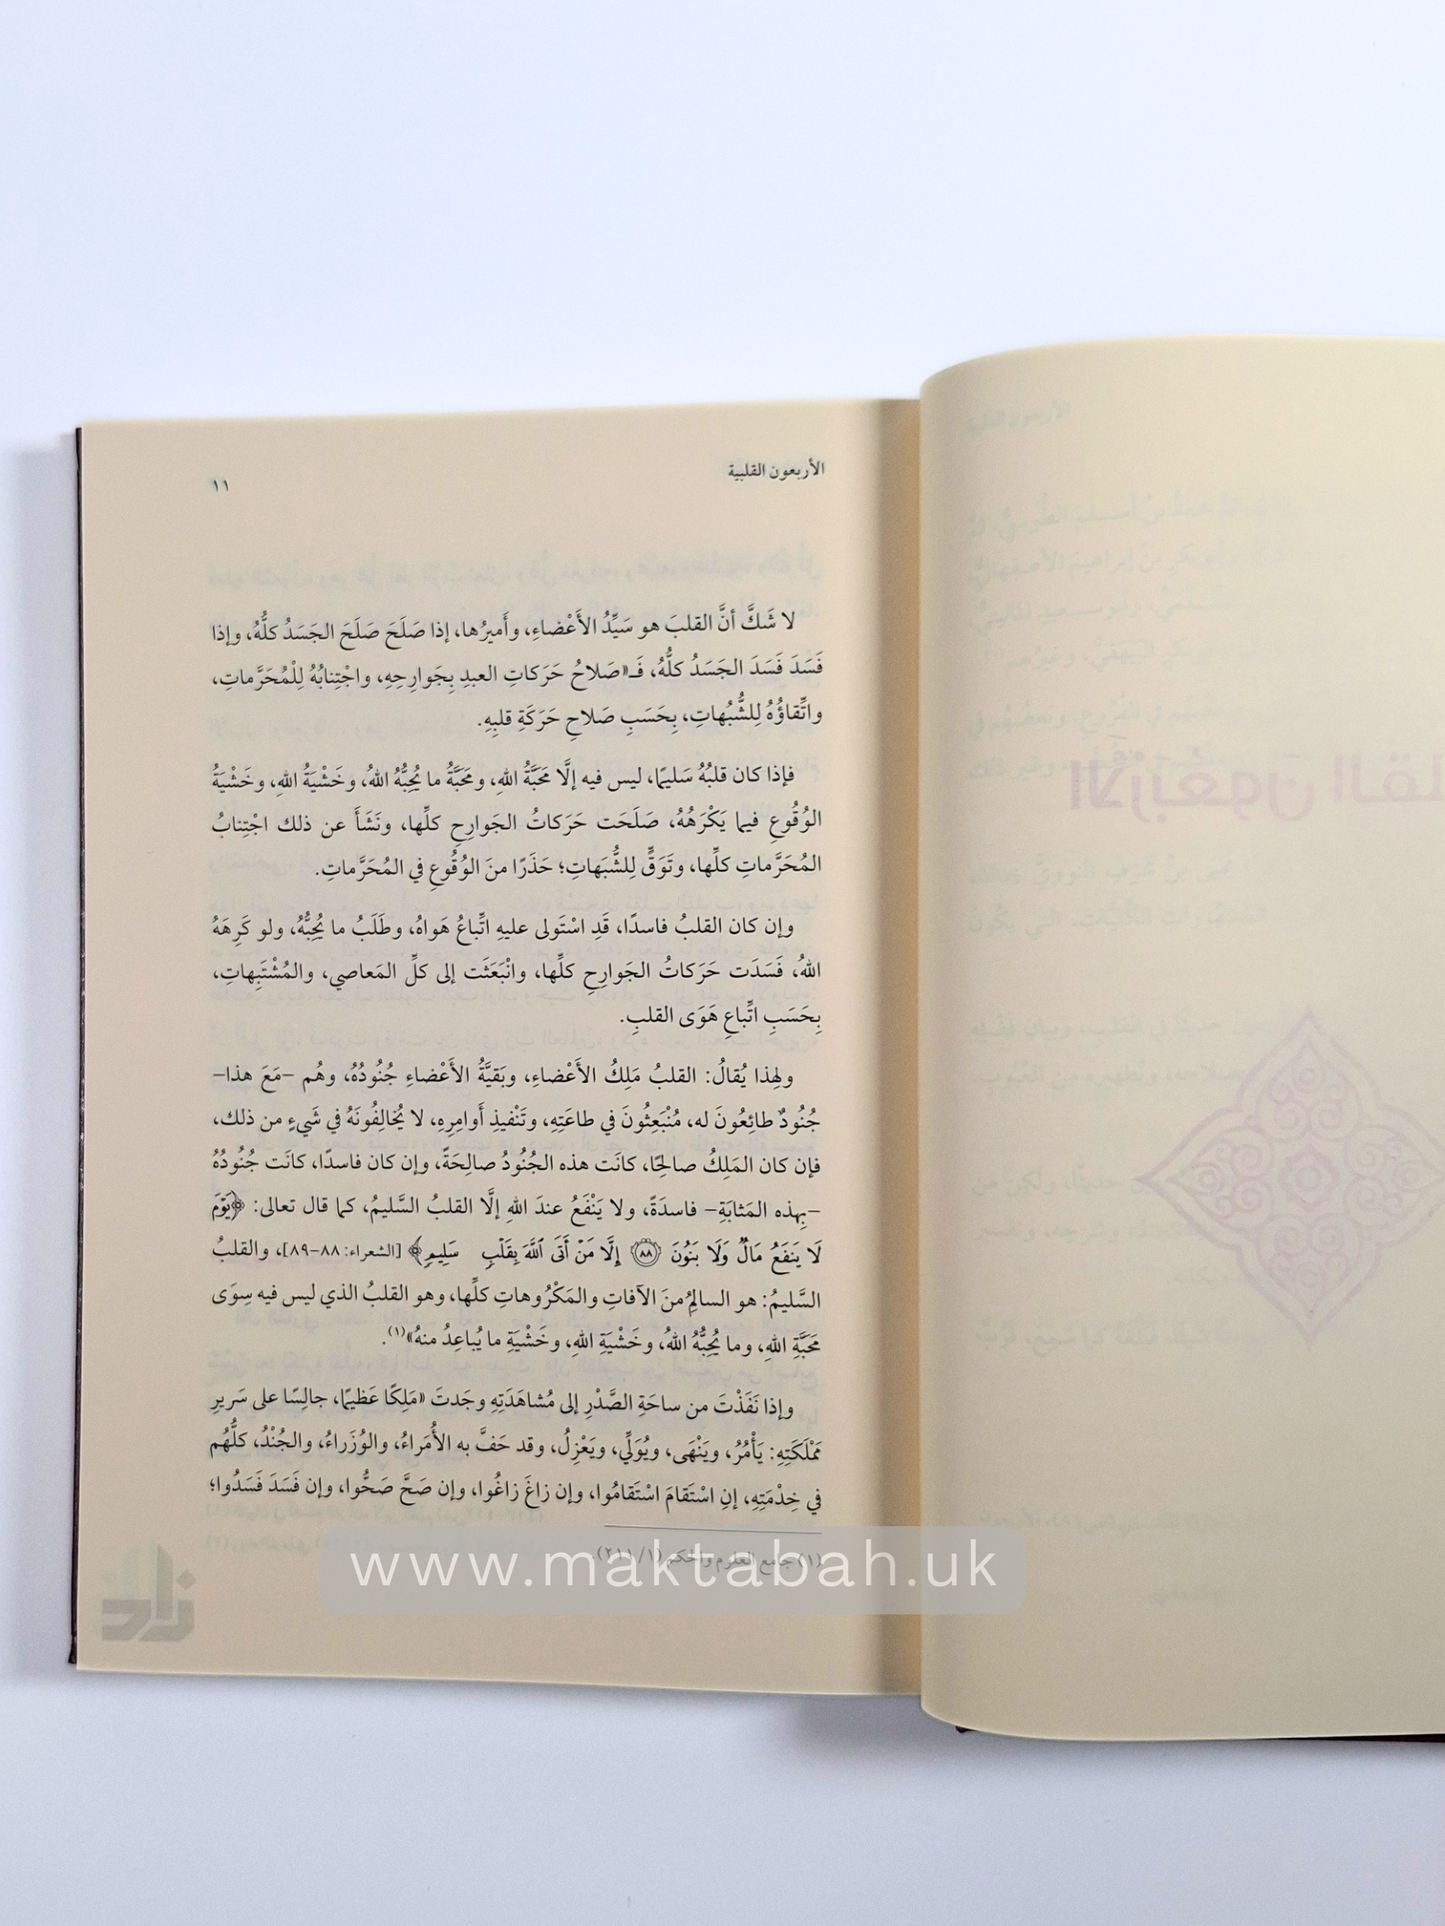 الأربعون القلبية
١١
لا شَكَّ أنَّ القلبَ هو سَيِّدُ الأَعْضاءِ، وأَميرُها، إذا صَلَحَ صَلَحَ الجَسَدُ كلُّهُ، وإذا
فَسَدَ فَسَدَ الجَسَدُ كلُّهُ، فَـ«صَلاحُ حَرَكاتِ العبدِ بِجَوارِحِهِ، واجْتِنابُهُ لِلْمُحَرَّماتِ،
واتِّقاؤُهُ لِلشُّبُهاتِ، بِحَسَبِ صَلاحِ حَرَكَةِ قلبِهِ.
فإذا كان قلبُهُ سَليمًا، ليس فيه إلَّا مَحَبَّةُ اللهِ، ومَحَبَّةُ ما يُحِبُّهُ اللهُ، وخَشْيَةُ اللهِ، وخَشْيَةُ
الوُقُوعِ فيما يَكْرَهُهُ، صَلَحَت حَرَكاتُ الجَوارِحِ كلِّها، ونَشَأَ عن ذلك اجْتِنابُ
المُحَرَّماتِ كلِّها، وتَوَقٍّ لِلشُّبَهاتِ؛ حَذَرًا منَ الوُقُوعِ في المُحَرَّماتِ.
وإن كان القلبُ فاسدًا، قَدِ اسْتَولى عليهِ اتِّباعُ هَواهُ، وطَلَبُ ما يُحِبُّهُ، ولو كَرِهَهُ
اللهُ، فَسَدَت حَرَكاتُ الجَوارِحِ كلِّها، وانْبَعَثَت إلى كلِّ المَعاصي، والمُشْتَبِهاتِ،
بِحَسَبِ اتِّباعِ هَوَى القلبِ.
ولهذا يُقالُ: القلبُ مَلِكُ الأَعْضاءِ، وبَقيَّةُ الأَعْضاءِ جُنُودُهُ، وهُم –مَعَ هذا–
جُنُودٌ طائِعُونَ له، مُنْبَعِثُونَ في طاعَتِهِ، وتَنْفيذِ أَوامِرِهِ، لا يُخالِفُونَهُ في شَيءٍ من ذلك،
فإن كان المَلِكُ صالحًا، كانَت هذه الجُنُودُ صالِحَةً، وإن كان فاسدًا، كانَت جُنُودُهُ
–بِهذه المَثابَةِ– فاسدَةً، ولا يَنْفَعُ عندَ اللهِ إلَّا القلبُ السَّليمُ، كما قال تعالى: ﴿يَوْمَ
لَا يَنفَعُ مَالٌ وَلَا بَنُونَ ﴿٨٨﴾ إِلَّا مَنْ أَتَى ٱللَّهَ بِقَلْبٍ سَلِيمٍ﴾ [الشعراء: ٨٨–٨٩]، والقلبُ
السَّليمُ: هو السالِمُ منَ الآفاتِ والمَكْرُوهاتِ كلِّها، وهو القلبُ الذي ليس فيه سِوَى
مَحَبَّةِ اللهِ، وما يُحِبُّهُ اللهُ، وخَشْيَةِ اللهِ، وخَشْيَةِ ما يُباعِدُ منهُ»(١).
وإذا نَفَذْتَ من ساحَةِ الصَّدْرِ إلى مُشاهَدَتِهِ وجَدتَ «مَلِكًا عَظيمًا، جالِسًا على سَريرِ
مَمْلَكَتِهِ: يَأْمُرُ، ويَنْهَى، ويُوَلِّي، ويَعْزِلُ، وقد حَفَّ به الأُمَراءُ، والوُزَراءُ، والجُنْدُ، كلُّهُم
في خِدْمَتِهِ، إنِ اسْتَقامَ اسْتَقامُوا، وإن زاغَ زاغُوا، وإن صَحَّ صَحُّوا، وإن فَسَدَ فَسَدُوا؛
(١) جامع العلوم والحكم (١/ ٢١١).
www.maktabah.uk
زاد